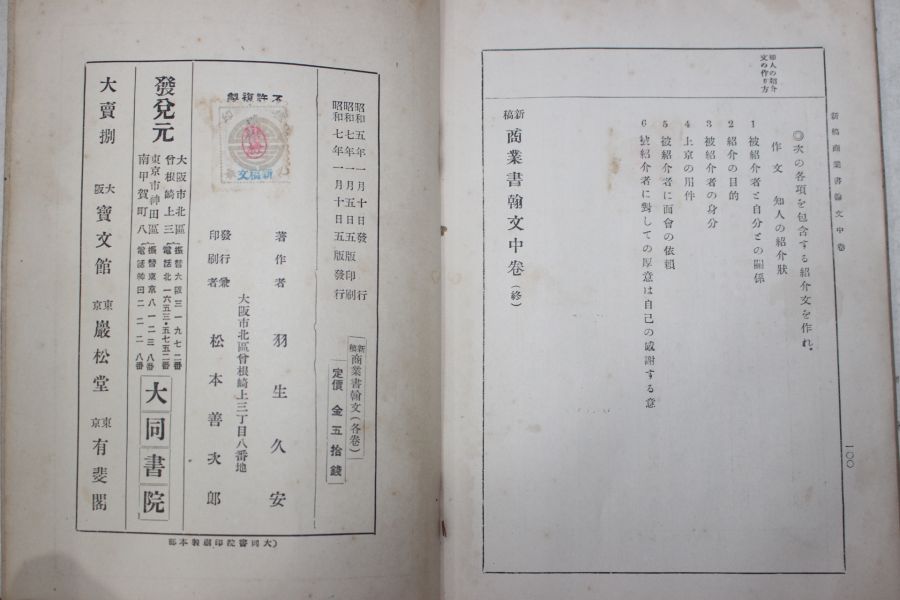 新稿商業書翰文中卷
一〇〇
知人の紹介
文の作り方
◎次の各項を包含する紹介文を作れ。
作文 知人の紹介狀
1 被紹介者と自分との關係
2 紹介の目的
3 被紹介者の身分
4 上京の用件
5 被紹介者に面會の依賴
6 被紹介者に對しての厚意は自己の感謝する意
新稿 商業書翰文中卷(終)
昭和五年一月十日發行
昭和七年一月五日五版印刷
昭和七年一月十日五版發行
新稿 商業書翰文(各卷)
定價金五拾錢
不許複製
新稿文
著作者 羽生久安
大阪市北區曾根崎上三丁目八番地
發行兼印刷者 松本善次郎
發兌元
大阪市北區曾根崎上三
振替大阪三一九七二番
電話北一六五三・五七五二番
東京市神田區南甲賀町八
振替東京八一二三八番
電話神田二二一二八番
大同書院
大賣捌
大阪 寶文館
東京 巖松堂
東京 有斐閣
(大同書院印刷製本部)